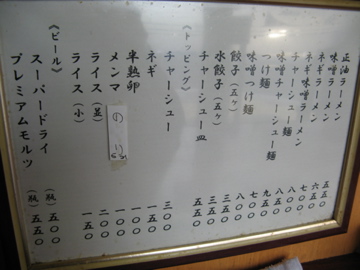 正油ラーメン 五五〇
味噌ラーメン
ネギラーメン 六五〇
ネギ味噌ラーメン 七〇〇
チャーシュー麺
味噌チャーシュー麺
つけ麺
味噌つけ麺 八〇〇
餃子（五ヶ） 三五〇
水餃子（五ヶ） 三五〇
チャーシュー皿 五五〇
《トッピング》
チャーシュー 三〇〇
ネギ 一五〇
半熟卵 一〇〇
メンマ 一〇〇
のり 一〇〇
ライス（並） 二〇〇
ライス（小） 一五〇
《ビール》
スーパードライ （瓶） 五〇〇
プレミアムモルツ （瓶） 五五〇